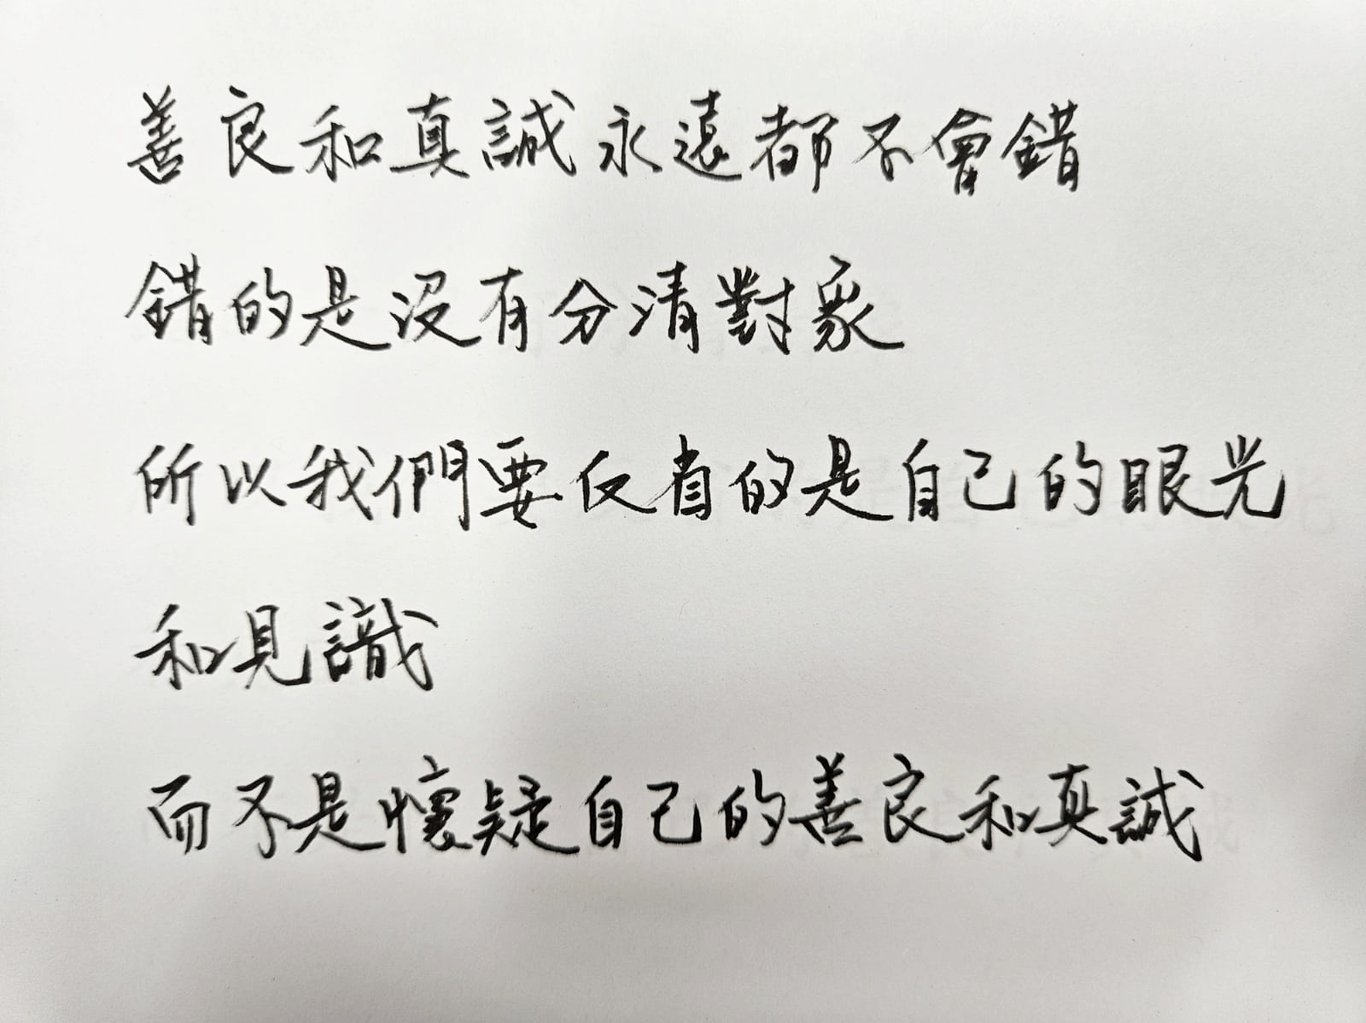 善良和真誠永遠都不會錯
錯的是沒有分清對象
所以我們要反省的是自己的眼光
和見識
而不是懷疑自己的善良和真誠